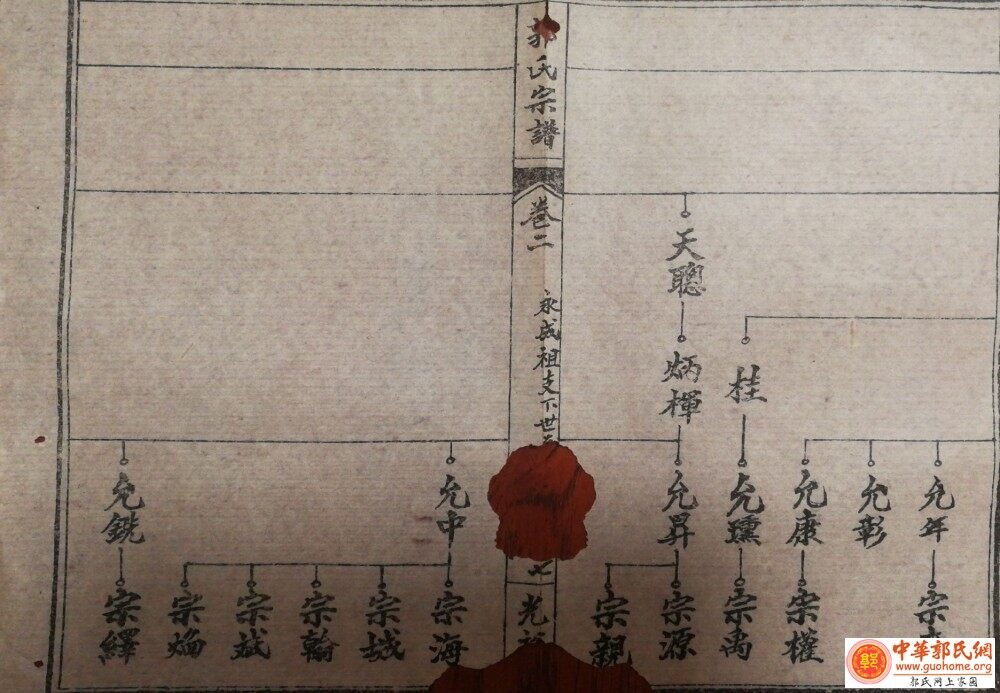 郭氏宗譜
卷二
永成祖支下世
七
天聰
炳楎
桂
允年
允彰
允康
允㻿
允昇
允中
允銑
宗
宗權
宗禹
宗源
宗親
光裕
宗海
宗城
宗翰
宗斌
宗煥
宗繹
中華郭氏網
www.guohome.org
郭氏网上家园